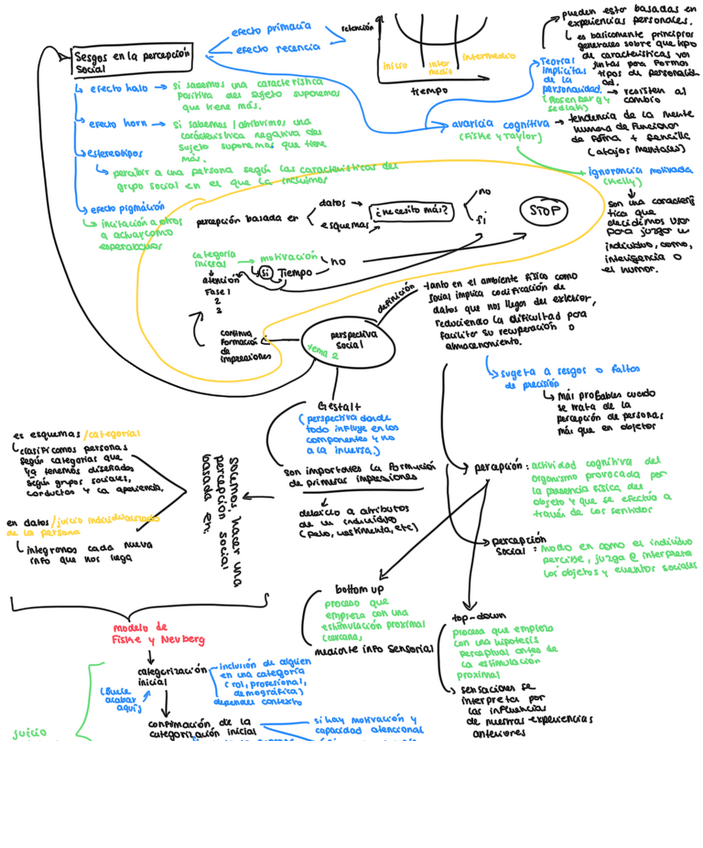 Sesgos en la percepción
social
efecto primacía
efecto recencia
retención
inicio
inter
medio
intermedio
tiempo
pueden estar basadas en
experiencias personales.
es basicamente principios
generales sobre que tipo
de características van
juntas para formar
tipos de personalidad
ad.
resisten al
cambio
Teorías
implícitas
de la
personalidad.
(Rosenberg y
Sedlak)
avaricia cognitiva
(Fiske y Taylor)
tendencia de la mente
humana de funcionar
de forma + sencilla
(atajos mentales)
ignorancia motivada
(Kelly)
son una caracterís
tica que
decidimos usar
para juzgar a
individuo, como,
inteligencia o
el humor.
efecto halo
si sabemos una característica
positiva del sujeto suponemos
que tiene más.
efecto horn
si sabemos / atribuimos una
característica negativa del
sujeto suponemos que tiene
más.
estereotipos
percibir a una persona según las características del
grupo social en el que la incluimos
efecto pigmalión
incitación a otros
a actuar como
esperabamos
percepción basada en
datos
esquemas
¿necesito más?
no
si
STOP
categoría
inicial
motivación
no
si
Tiempo
atención
Fase 1
2
3
continua
formación
de
impresiones
perspectiva
social
tema 2
definición
tanto en el ambiente físico como
social implica codificación de
datos que nos llegan del exterior,
reduciendo la dificultad para
facilitar su recuperación o
almacenamiento.
sugeta a sesgos o faltos
de precisión
más probables cuando
se trata de la
percepción de personas
más que en objetor
Gestalt
(perspectiva donde
todo influye en los
componentes y no
a la inversa.)
son importantes la formación
de primeras impresiones
debido a atributos
de un individuo
(pelo, vestimenta, etc)
es esquemas /categorial
clasificamos personas
según categorías que
ya tenemos diseñadas
según grupos sociales,
conductas y la apariencia.
en datos /juicio individualizado
de la persona
integramos cada nueva
info que nos llega
solemos, hacer una
percepción social
basada en:
percepción: actividad cognitiva del
organismo provocada por
la presencia física del
objeto y que se efectúa a
través de los sentidor
percepción
social: modo en como el individuo
percibe, juzga e interpreta
los objetos y eventos sociales
bottom up
proceso que
empieza con una
estimulación proximal
(cercana)
mediante info sensorial
top-down
proceso que empieza
con una hipótesis
perceptual antes de
la estimulación
proximal
sensaciones se
interpretan por
las influencias
de nuestras experiencias
anteriores
modelo de
Fiske y Neuberg
categorización
inicial
(suele
acabar
aquí)
inclusión de alguien
en una categoría
(rol, profesional,
demográfica)
depende contexto
confirmación de la
categorización inicial
si hay motivación y
capacidad atencional
juicio